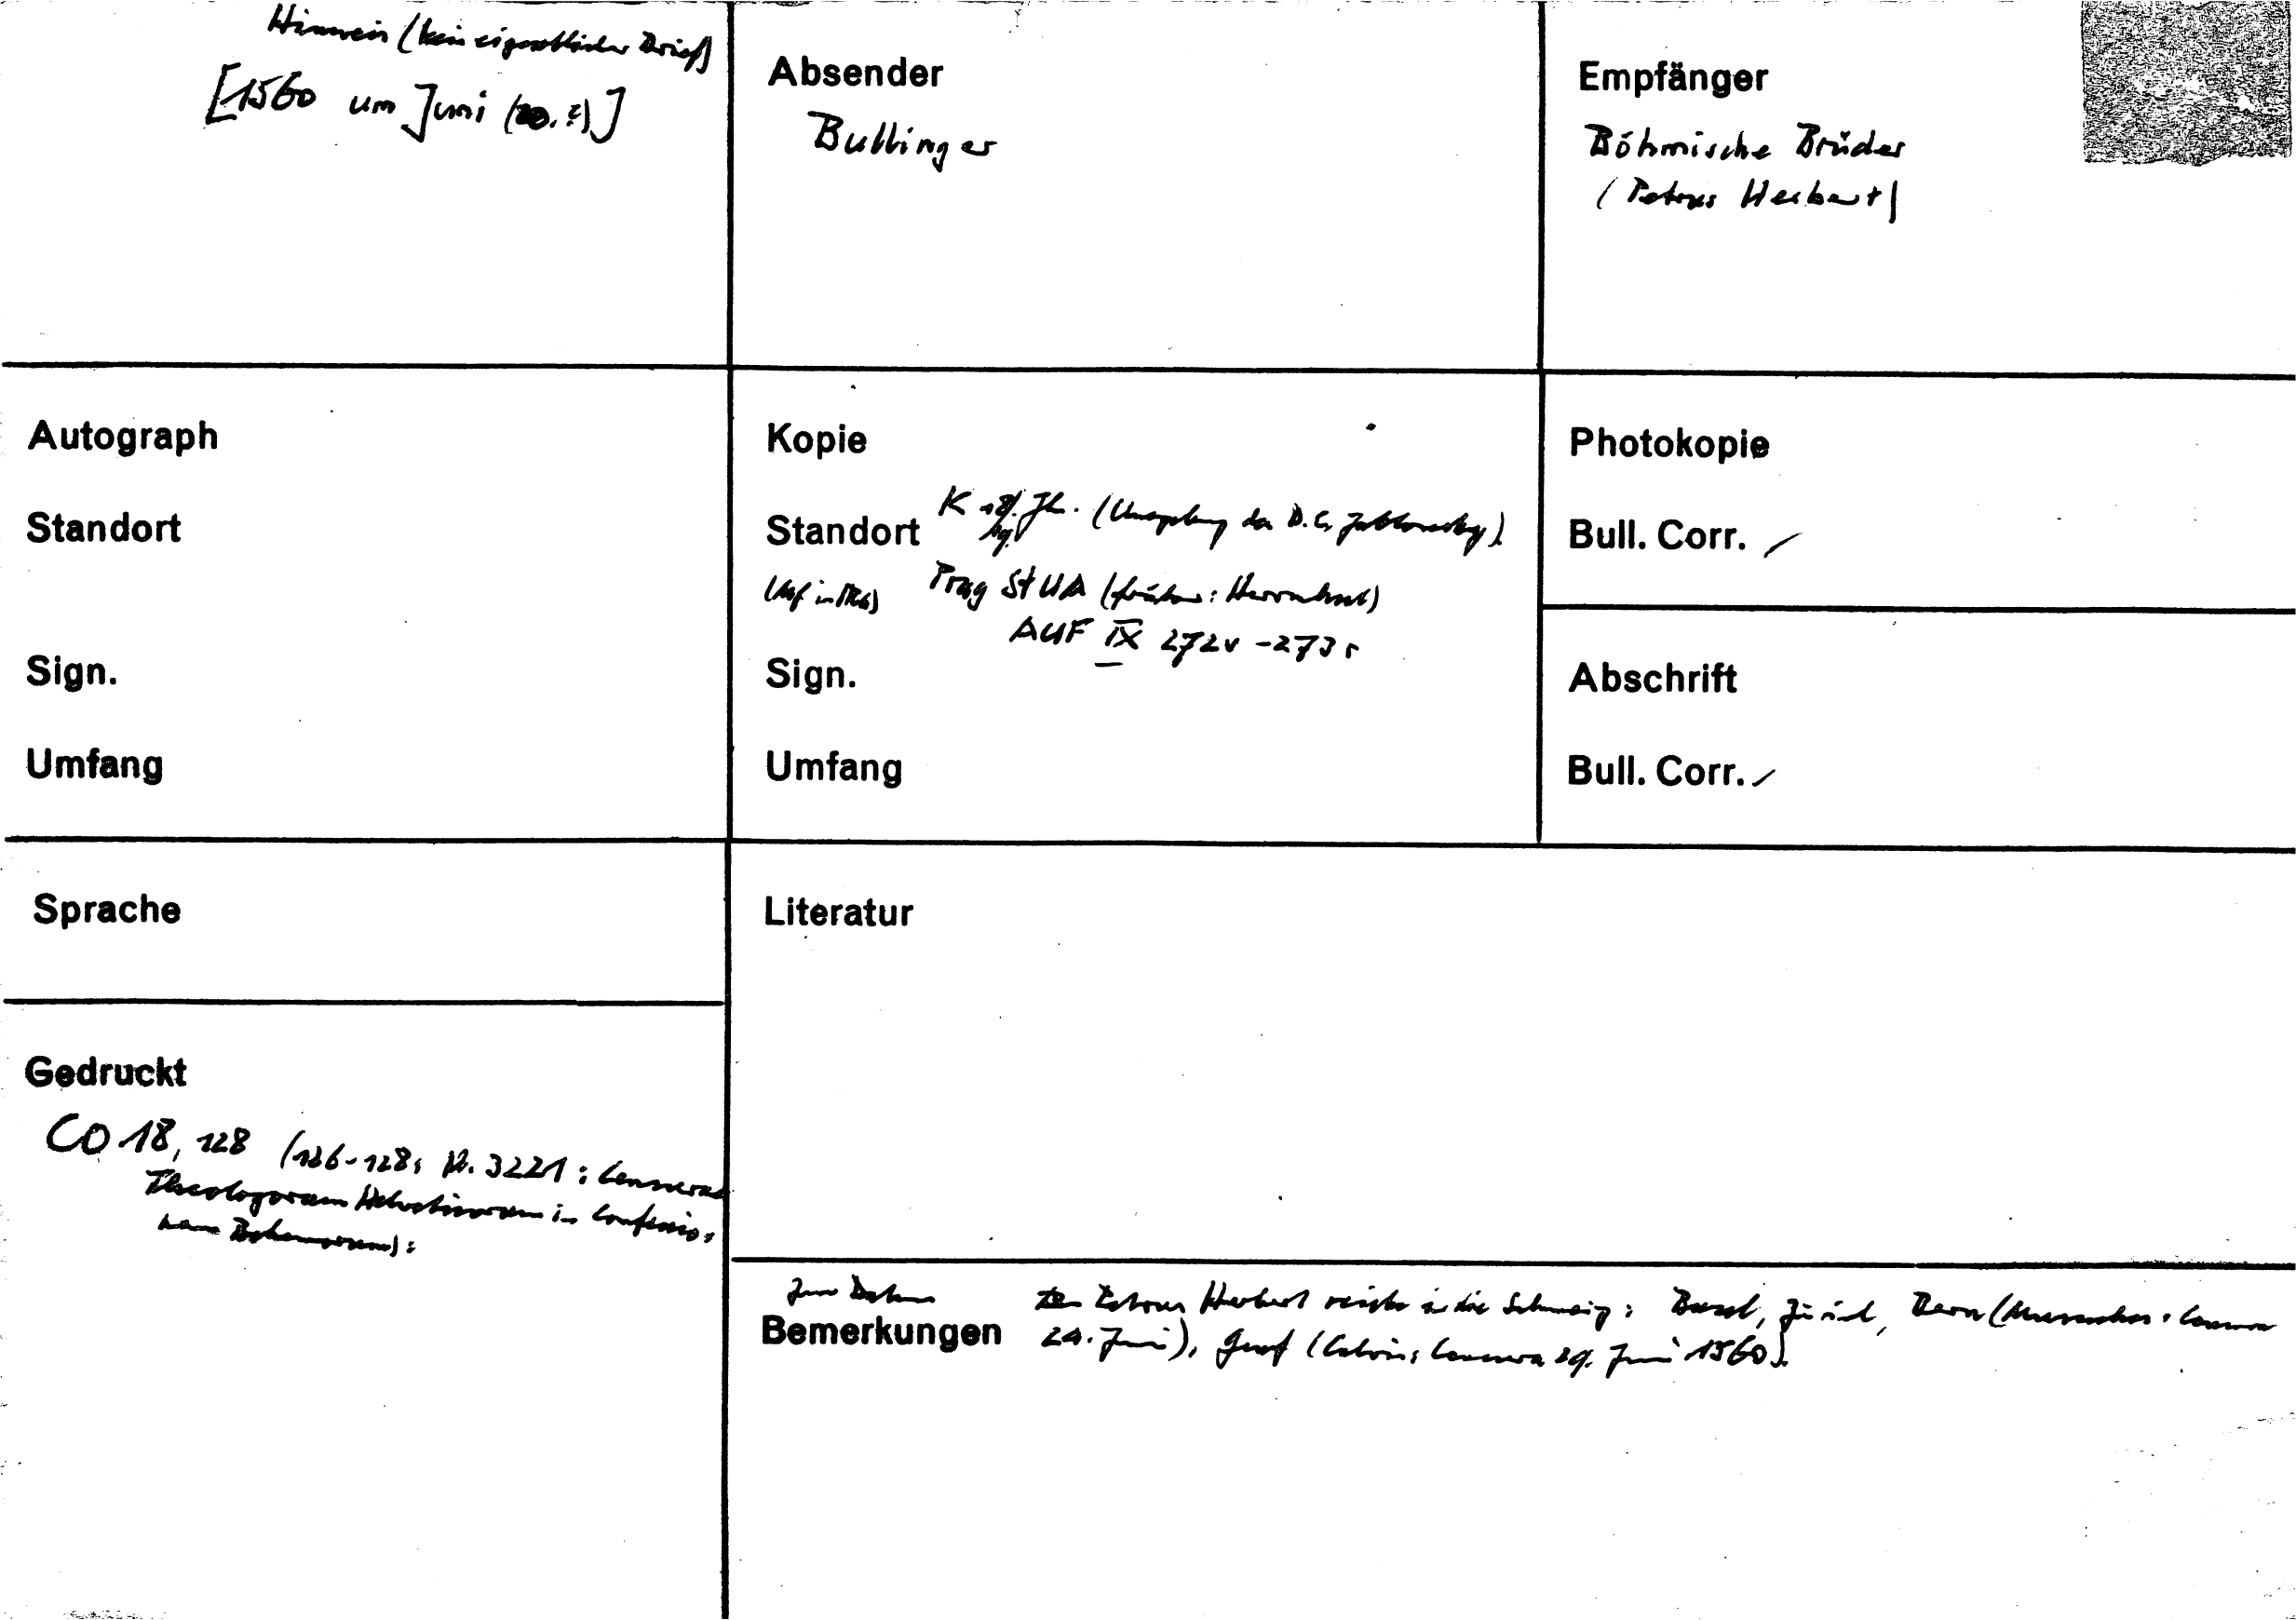 Hinweis (kein eigentlicher Brief)
[1560 um Juni (20.?)]
Absender
Bullinger
Empfänger
Böhmische Brüder
(Petrus Herbert)
Autograph
Standort
Sign.
Umfang
Kopie
Standort K Jh. (Umgebung des D. E. Jablonsky)
Prag StUA (früher: Herrnhut)
AUF IX 272v-273r
Sign.
Umfang
Photokopie
Bull. Corr. /
Abschrift
Bull. Corr. /
Sprache
Literatur
Gedruckt
CO 18, 128 (126-128, Nr. 3221: Censurae
Theologorum Helvetiorum in Confessio-
nem Bohemorum):
Zum Datum
Bemerkungen
Petrus Herbert reiste in die Schweiz: Basel, Zürich, Bern (Musculus: Censura
24. Juni), Genf (Calvin: Censura 29. Juni 1560).